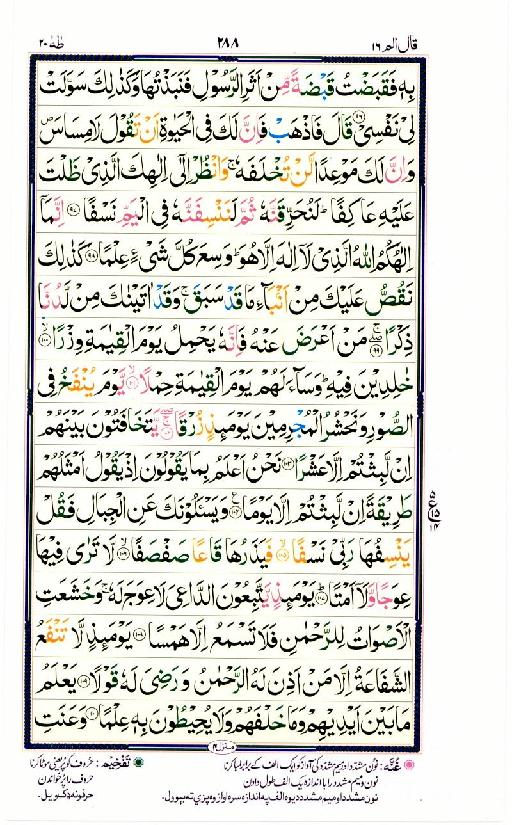 قال الم ١٦ ٢٨٨ طٰهٰ ٢٠
بِهٖ فَقَبَضْتُ قَبْضَةً مِّنْ اَثَرِ الرَّسُوْلِ فَنَبَذْتُهَا وَكَذٰلِكَ سَوَّلَتْ
لِیْ نَفْسِیْ ﴿٩٦﴾ قَالَ فَاذْهَبْ فَاِنَّ لَكَ فِی الْحَیٰوةِ اَنْ تَقُوْلَ لَا مِسَاسَ ۪
وَاِنَّ لَكَ مَوْعِدًا لَّنْ تُخْلَفَهٗ ۚ وَانْظُرْ اِلٰۤی اِلٰهِكَ الَّذِیْ ظَلْتَ
عَلَیْهِ عَاكِفًا ؕ لَنُحَرِّقَنَّهٗ ثُمَّ لَنَنْسِفَنَّهٗ فِی الْیَمِّ نَسْفًا ﴿٩٧﴾ اِنَّمَاۤ
اِلٰهُكُمُ اللّٰهُ الَّذِیْ لَاۤ اِلٰهَ اِلَّا هُوَ ؕ وَسِعَ كُلَّ شَیْءٍ عِلْمًا ﴿٩٨﴾ كَذٰلِكَ
نَقُصُّ عَلَیْكَ مِنْ اَنْۢبَآءِ مَا قَدْ سَبَقَ ۚ وَقَدْ اٰتَیْنٰكَ مِنْ لَّدُنَّا
ذِكْرًا ﴿٩٩﴾ مَنْ اَعْرَضَ عَنْهُ فَاِنَّهٗ یَحْمِلُ یَوْمَ الْقِیٰمَةِ وِزْرًا ﴿١٠٠﴾
خٰلِدِیْنَ فِیْهِ ؕ وَسَآءَ لَهُمْ یَوْمَ الْقِیٰمَةِ حِمْلًا ﴿١٠١﴾ یَّوْمَ یُنْفَخُ فِی
الصُّوْرِ وَنَحْشُرُ الْمُجْرِمِیْنَ یَوْمَئِذٍ زُرْقًا ﴿١٠٢﴾ یَّتَخَافَتُوْنَ بَیْنَهُمْ
اِنْ لَّبِثْتُمْ اِلَّا عَشْرًا ﴿١٠٣﴾ نَحْنُ اَعْلَمُ بِمَا یَقُوْلُوْنَ اِذْ یَقُوْلُ اَمْثَلُهُمْ
طَرِیْقَةً اِنْ لَّبِثْتُمْ اِلَّا یَوْمًا ﴿١٠٤﴾ وَیَسْـَٔلُوْنَكَ عَنِ الْجِبَالِ فَقُلْ
یَنْسِفُهَا رَبِّیْ نَسْفًا ﴿١٠٥﴾ فَیَذَرُهَا قَاعًا صَفْصَفًا ﴿١٠٦﴾ لَّا تَرٰی فِیْهَا
عِوَجًا وَّلَاۤ اَمْتًا ﴿١٠٧﴾ یَوْمَئِذٍ یَّتَّبِعُوْنَ الدَّاعِیَ لَا عِوَجَ لَهٗ ۚ وَخَشَعَتِ
الْاَصْوَاتُ لِلرَّحْمٰنِ فَلَا تَسْمَعُ اِلَّا هَمْسًا ﴿١٠٨﴾ یَوْمَئِذٍ لَّا تَنْفَعُ
الشَّفَاعَةُ اِلَّا مَنْ اَذِنَ لَهُ الرَّحْمٰنُ وَرَضِیَ لَهٗ قَوْلًا ﴿١٠٩﴾ یَعْلَمُ
مَا بَیْنَ اَیْدِیْهِمْ وَمَا خَلْفَهُمْ وَلَا یُحِیْطُوْنَ بِهٖ عِلْمًا ﴿١١٠﴾ وَعَنَتِ
منزل ٤
غُنَّه : نون مشدد اور میم مشدد کی آواز کو ایک الف کے برابر لمبا کرنا
نون و میم مشدد را با اندازه یک الف طول دادن
نون مشدد او میم مشدد دیوه الف په اندازه سره اواز وږدې تهٔ ویول.
تَفْخِیْم : حروف کو پُر یعنی موٹا کرنا
حروف را پر خواندن
حرفونه ډک ویل.